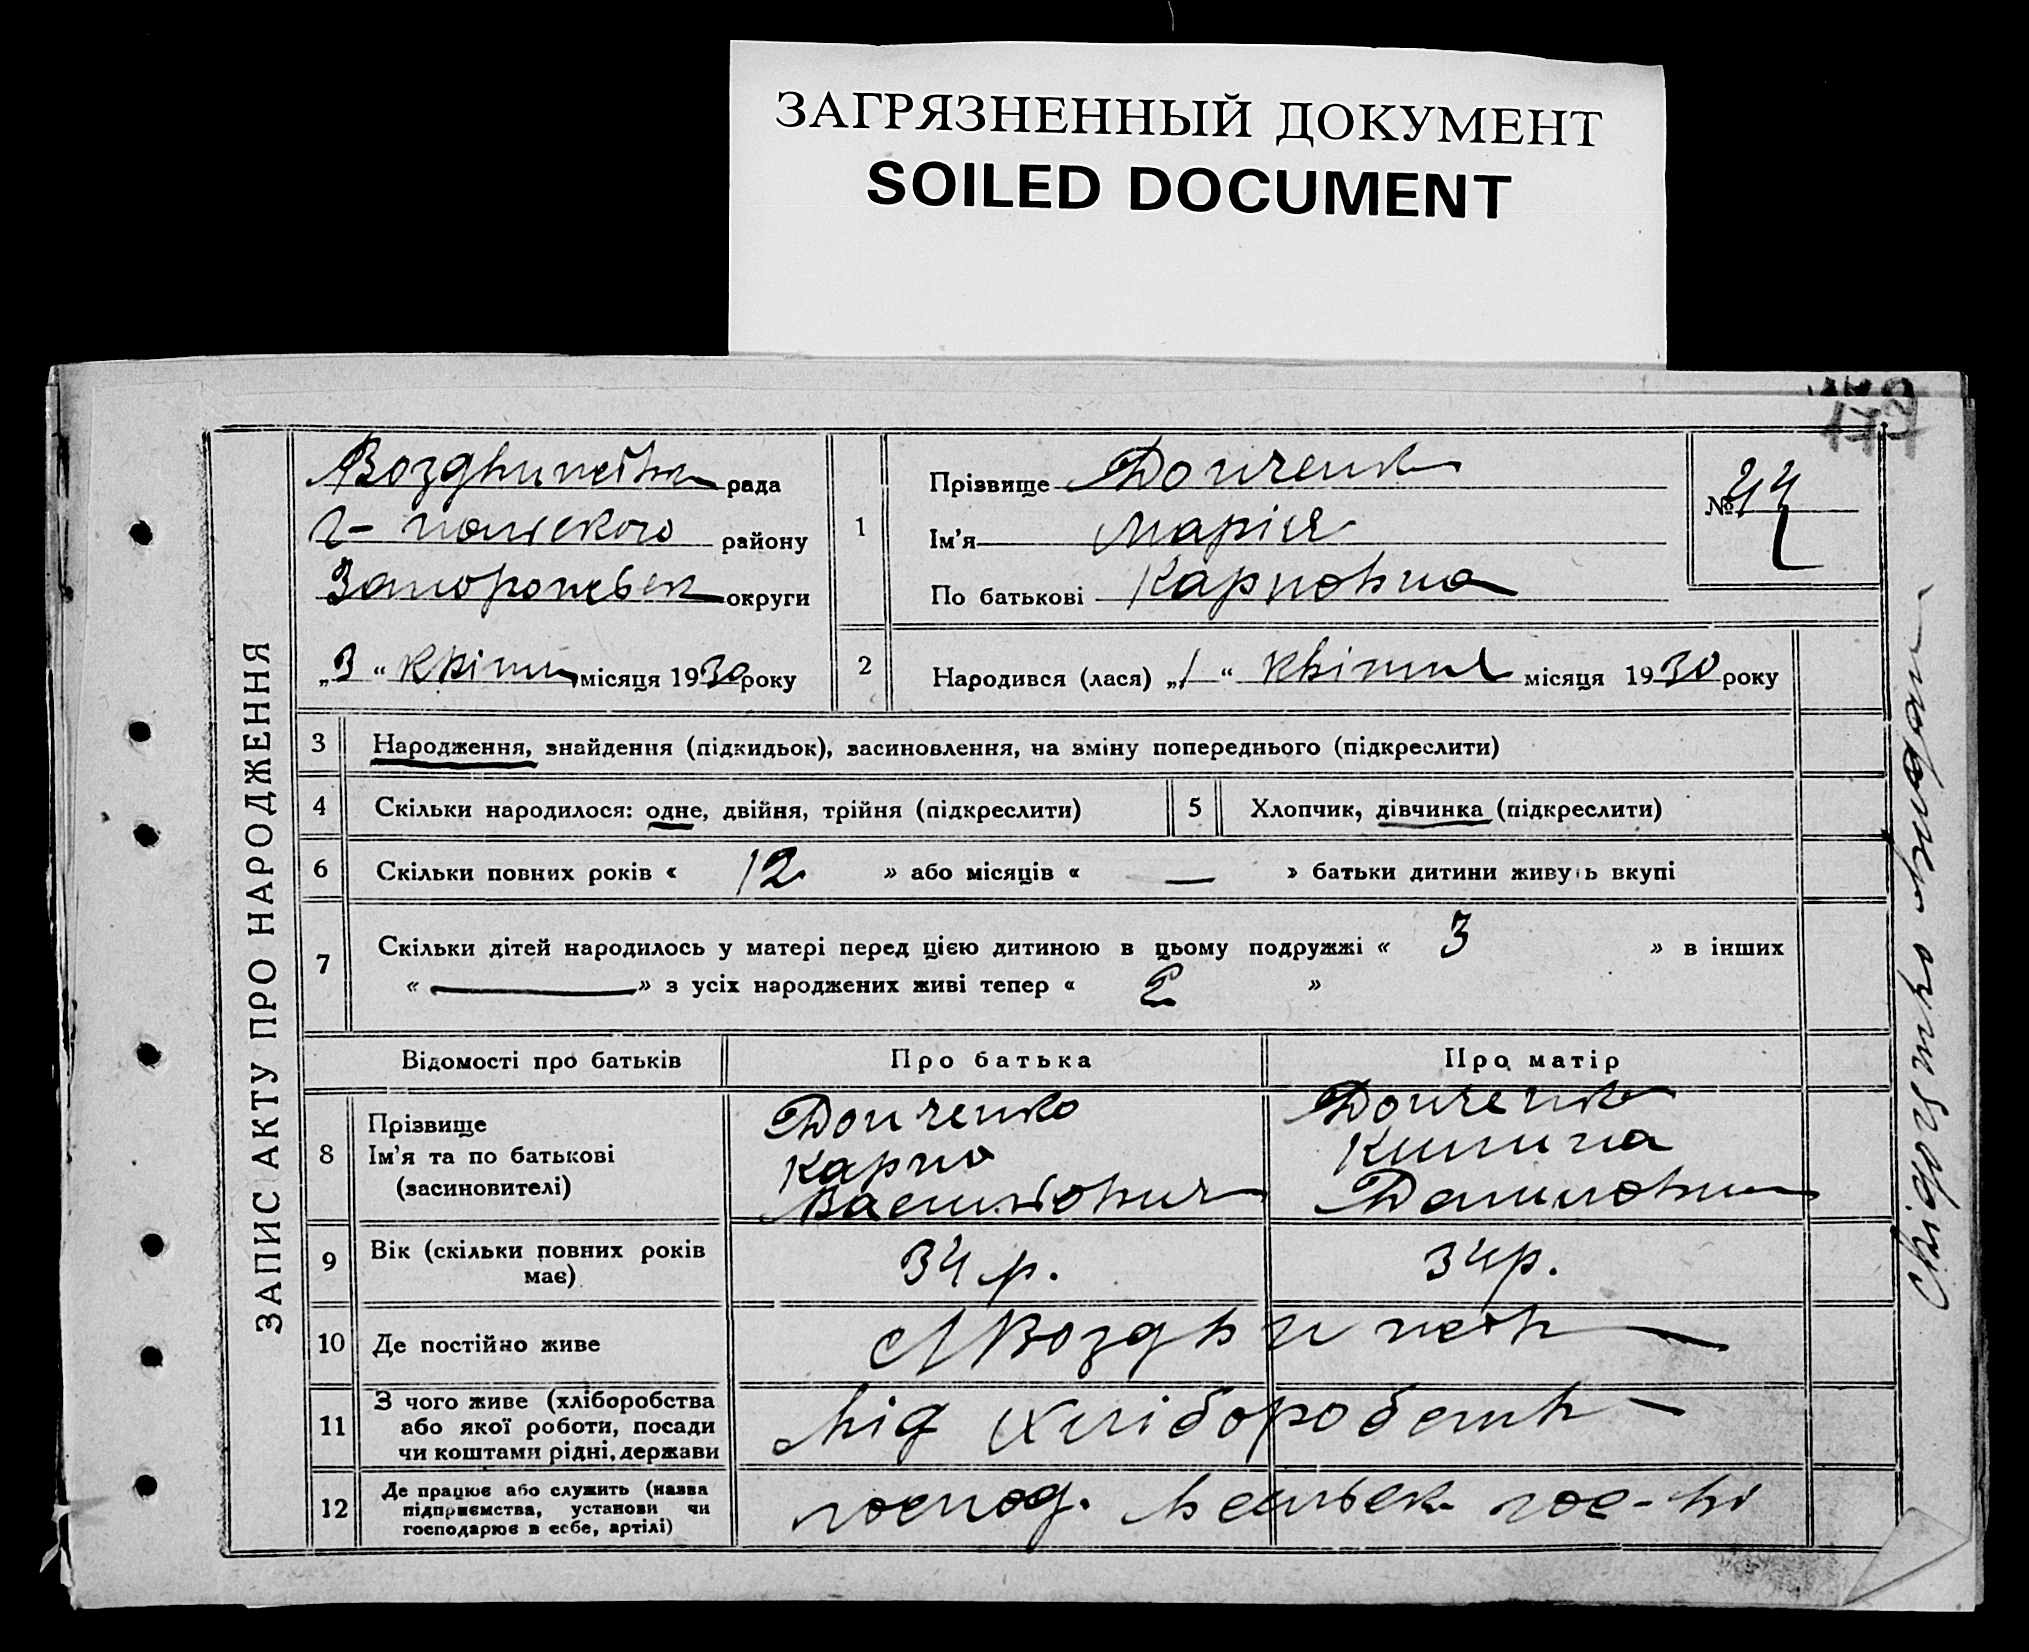 ЗАГРЯЗНЕННЫЙ ДОКУМЕНТ
SOILED DOCUMENT
ЗАПИС АКТУ ПРО НАРОДЖЕННЯ
рада
Г-польского району
Запорожськ округи
„3“ квітня місяця 1930 року
1
Прізвище Донченк
Ім'я Марія
По батькові Карповна
№ 44
2
Народився (лася) „1“ квітня місяця 1930 року
3 Народження, знайдення (підкидьок), засиновлення, на зміну попереднього (підкреслити)
4 Скільки народилося: одне, двійня, трійня (підкреслити) 5 Хлопчик, дівчинка (підкреслити)
6 Скільки повних років « 12 » або місяців « — » батьки дитини живуть вкупі
7 Скільки дітей народилось у матері перед цією дитиною в цьому подружжі « 3 » в інших
« — » з усіх народжених живі тепер « 2 »
Відомості про батьків Про батька Про матір
8 Прізвище
Ім'я та по батькові
(засиновителі)
Донченко
Карпо
Васильович
Донченк
Даниловн
9 Вік (скільки повних років
має)
34 р. 34 р.
10 Де постійно живе
11 З чого живе (хліборобства
або якої роботи, посади
чи коштами рідні, держави
від хліборобств
12 Де працює або служить (назва
підприємства, установи чи
господарює в себе, артілі)
господ. в сільськ гос-ві